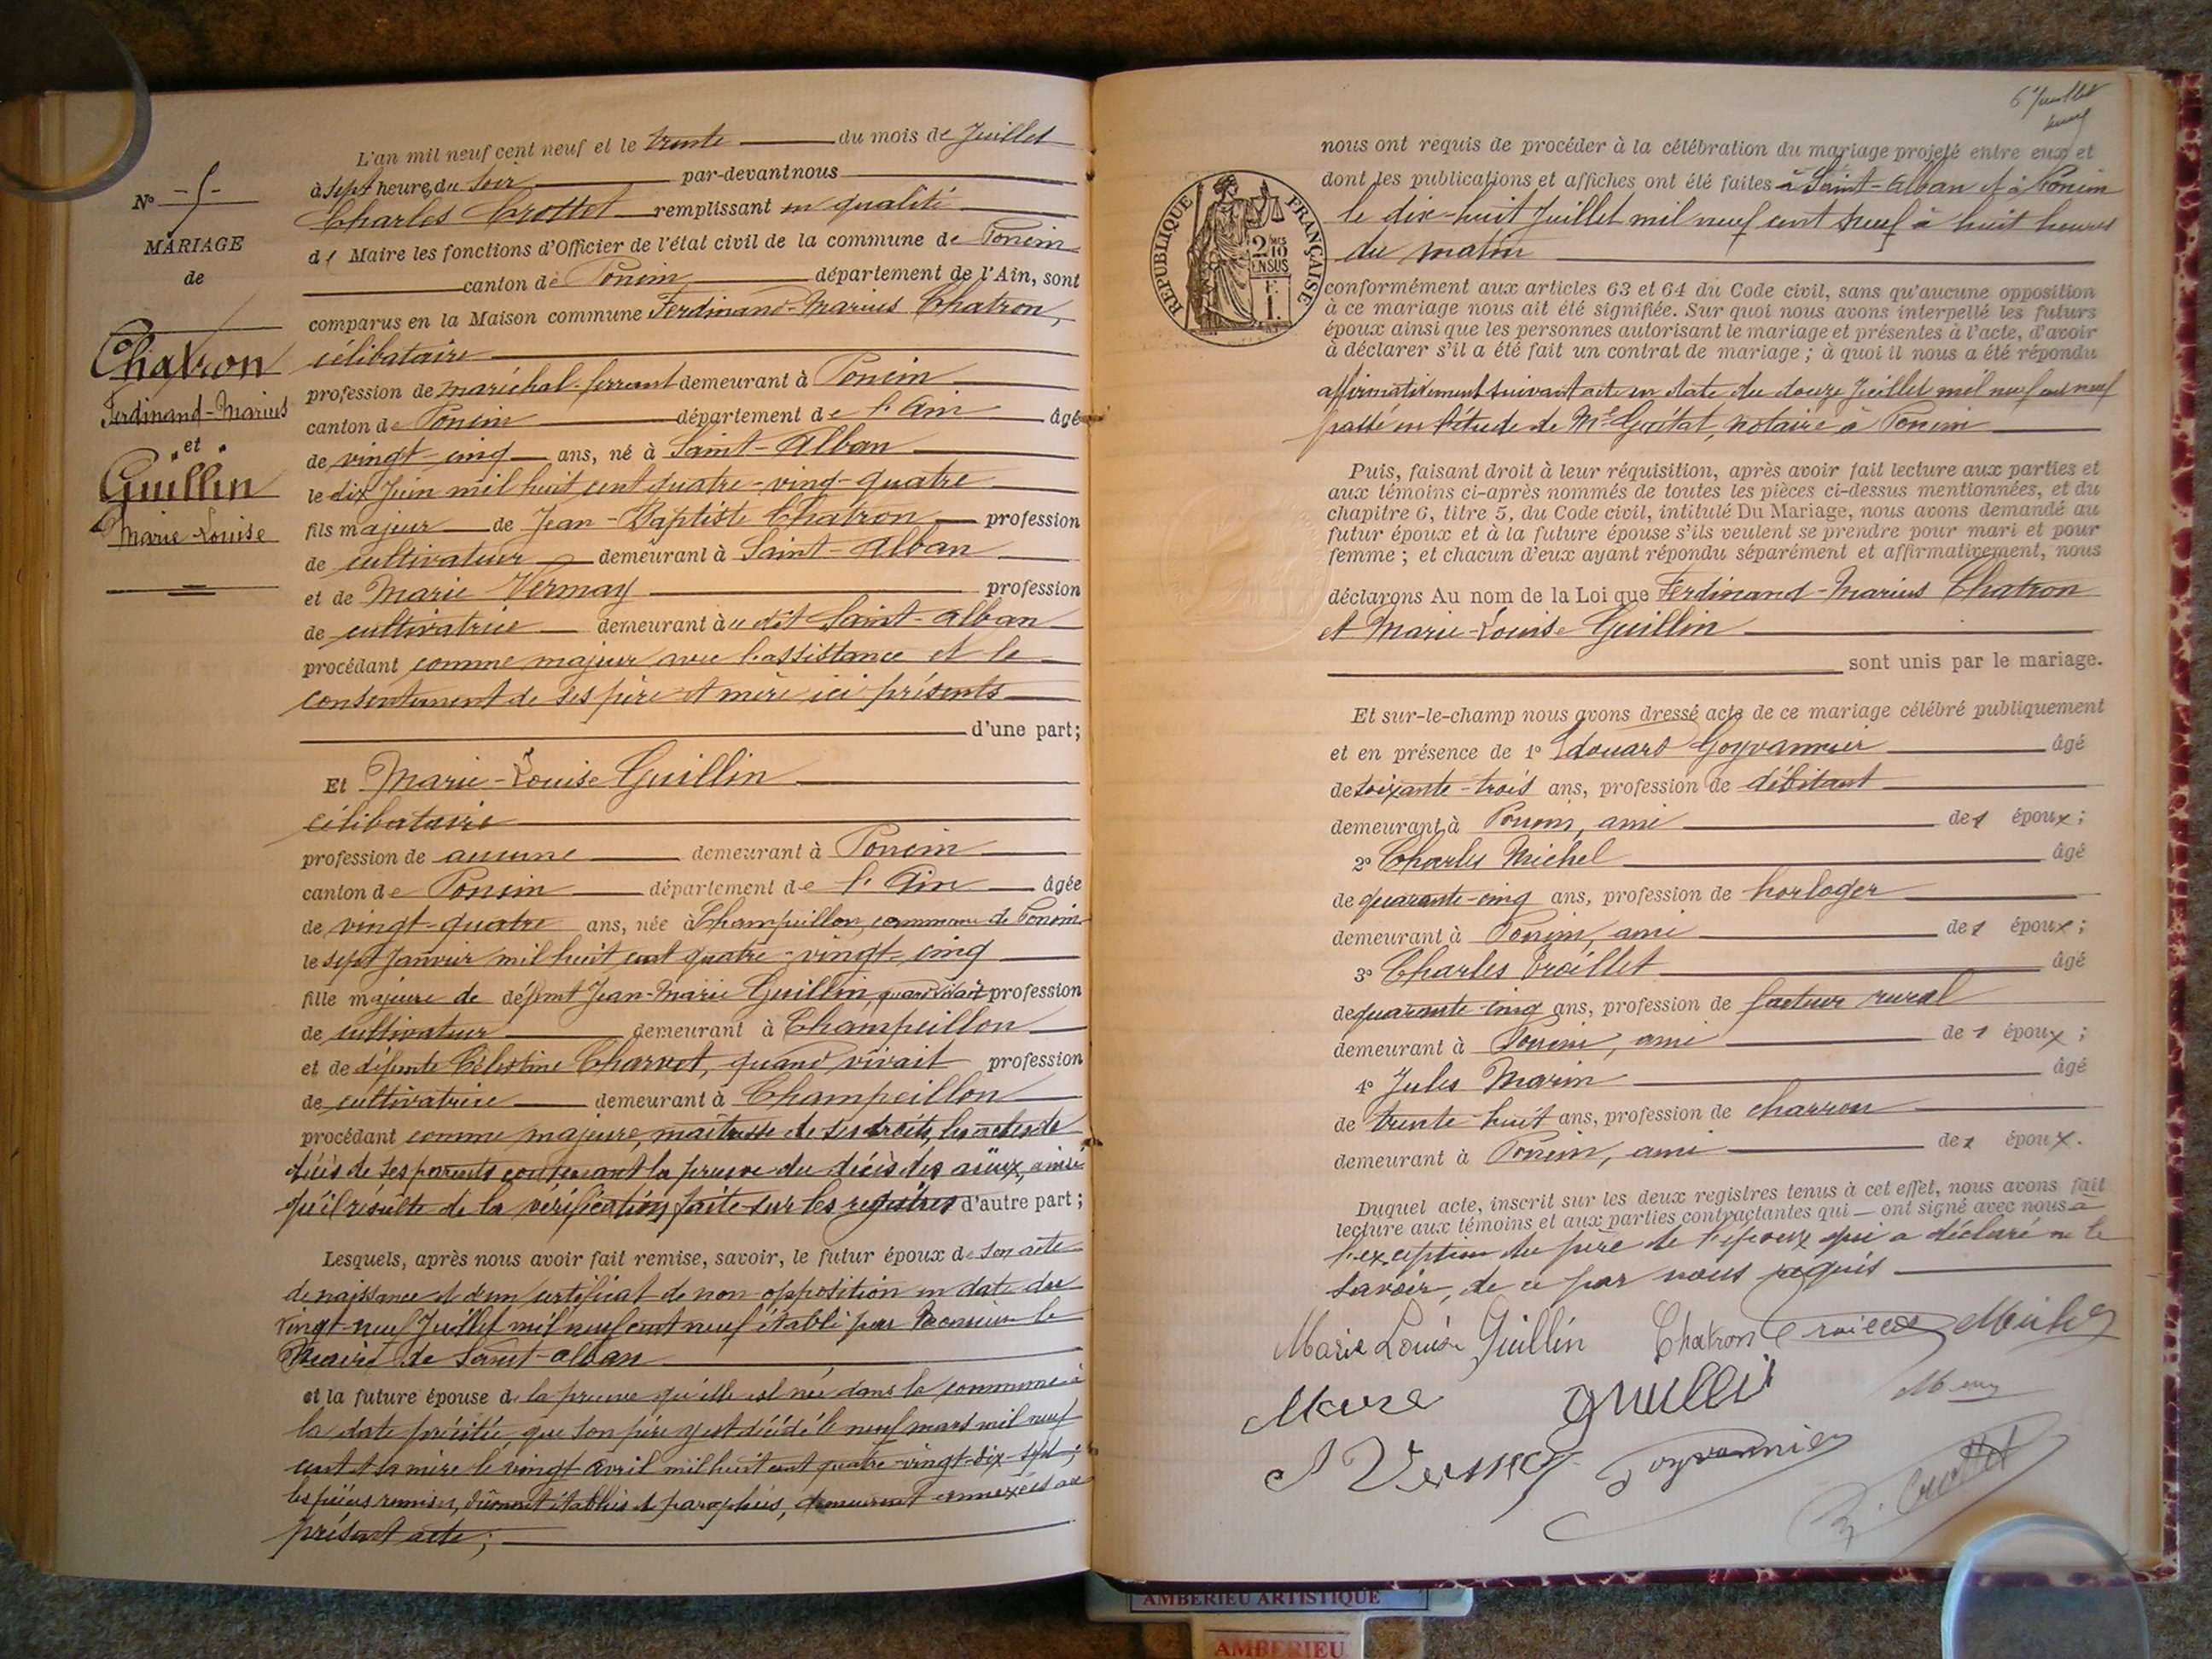 L'an mil neuf cent neuf et le trente du mois de Juillet
à sept heures du soir par-devant nous
Charles Crottet remplissant en qualité
de Maire les fonctions d'Officier de l'état civil de la commune de Poncin
canton de Poncin département de l'Ain, sont
comparus en la Maison commune Ferdinand-Marius Chatron,
célibataire
profession de maréchal-ferrant demeurant à Poncin
canton de Poncin département de l'Ain âgé
de vingt-cinq ans, né à Saint-Alban
le dix Juin mil huit cent quatre-vingt-quatre
fils majeur de Jean-Baptiste Chatron profession
de cultivateur demeurant à Saint-Alban
et de Marie Vernay profession
de cultivatrice demeurant au dit Saint-Alban
procédant comme majeur avec l'assistance et le
consentement de ses père et mère ici présents
d'une part;
Et Marie-Louise Guillin
célibataire
profession de aucune demeurant à Poncin
canton de Poncin département de l'Ain âgée
de vingt-quatre ans, née à Champeillon, commune de Poncin
le sept Janvier mil huit cent quatre-vingt-cinq
fille majeure de défunt Jean-Marie Guillin, quand vivait profession
de cultivateur demeurant à Champeillon
et de défunte Célestine Charvet, quand vivait profession
de cultivatrice demeurant à Champeillon
procédant comme majeure, maîtresse de ses droits, les actes de
décès de ses parents contenant la preuve du décès des aïeux, ainsi
qu'il résulte de la vérification faite sur les registres d'autre part;
Lesquels, après nous avoir fait remise, savoir, le futur époux de son acte
de naissance et d'un certificat de non opposition en date du
vingt-neuf Juillet mil neuf cent neuf établi par Monsieur le
Maire de Saint-Alban
et la future épouse de la preuve qu'elle est née dans la commune à
la date précitée, que son père y est décédé le neuf mars mil neuf
cent et sa mère le vingt Avril mil huit cent quatre-vingt-dix-sept;
les pièces remises, dûment établies et paraphées, demeurent annexées au
présent acte;
N° 5
MARIAGE
de
Chatron
Ferdinand-Marius
et
Guillin
Marie-Louise
6e Juillet
nous ont requis de procéder à la célébration du mariage projeté entre eux et
dont les publications et affiches ont été faites à Saint-Alban et à Poncin
le dix-huit Juillet mil neuf cent neuf à huit heures
du matin
RÉPUBLIQUE FRANÇAISE
2/10
EN SUS
F.
1.
conformément aux articles 63 et 64 du Code civil, sans qu'aucune opposition
à ce mariage nous ait été signifiée. Sur quoi nous avons interpellé les futurs
époux ainsi que les personnes autorisant le mariage et présentes à l'acte, d'avoir
à déclarer s'il a été fait un contrat de mariage; à quoi il nous a été répondu
affirmativement suivant acte en date du douze Juillet mil neuf cent neuf
passé en l'étude de Me Goitat, notaire à Poncin
Puis, faisant droit à leur réquisition, après avoir fait lecture aux parties et
aux témoins ci-après nommés de toutes les pièces ci-dessus mentionnées, et du
chapitre 6, titre 5, du Code civil, intitulé Du Mariage, nous avons demandé au
futur époux et à la future épouse s'ils veulent se prendre pour mari et pour
femme; et chacun d'eux ayant répondu séparément et affirmativement, nous
déclarons Au nom de la Loi que Ferdinand-Marius Chatron
et Marie-Louise Guillin
sont unis par le mariage.
Et sur-le-champ nous avons dressé acte de ce mariage célébré publiquement
et en présence de 1° Edouard Goyvannier âgé
de soixante-trois ans, profession de débitant
demeurant à Poncin, ami des époux;
2° Charles Michel âgé
de quarante-cinq ans, profession de horloger
demeurant à Poncin, ami des époux;
3° Charles Troillet âgé
de quarante-cinq ans, profession de facteur rural
demeurant à Poncin, ami des époux;
4° Jules Marin âgé
de trente-huit ans, profession de charron
demeurant à Poncin, ami des époux.
Duquel acte, inscrit sur les deux registres tenus à cet effet, nous avons fait
lecture aux témoins et aux parties contractantes qui ont signé avec nous à
l'exception du père de l'époux qui a déclaré ne le
savoir, de ce par nous requis
Marie Louise Guillin Chatron Troillet Michel
Guillin
Vernay Goyvannier
Crottet
AMBERIEU ARTISTIQUE
AMBERIEU